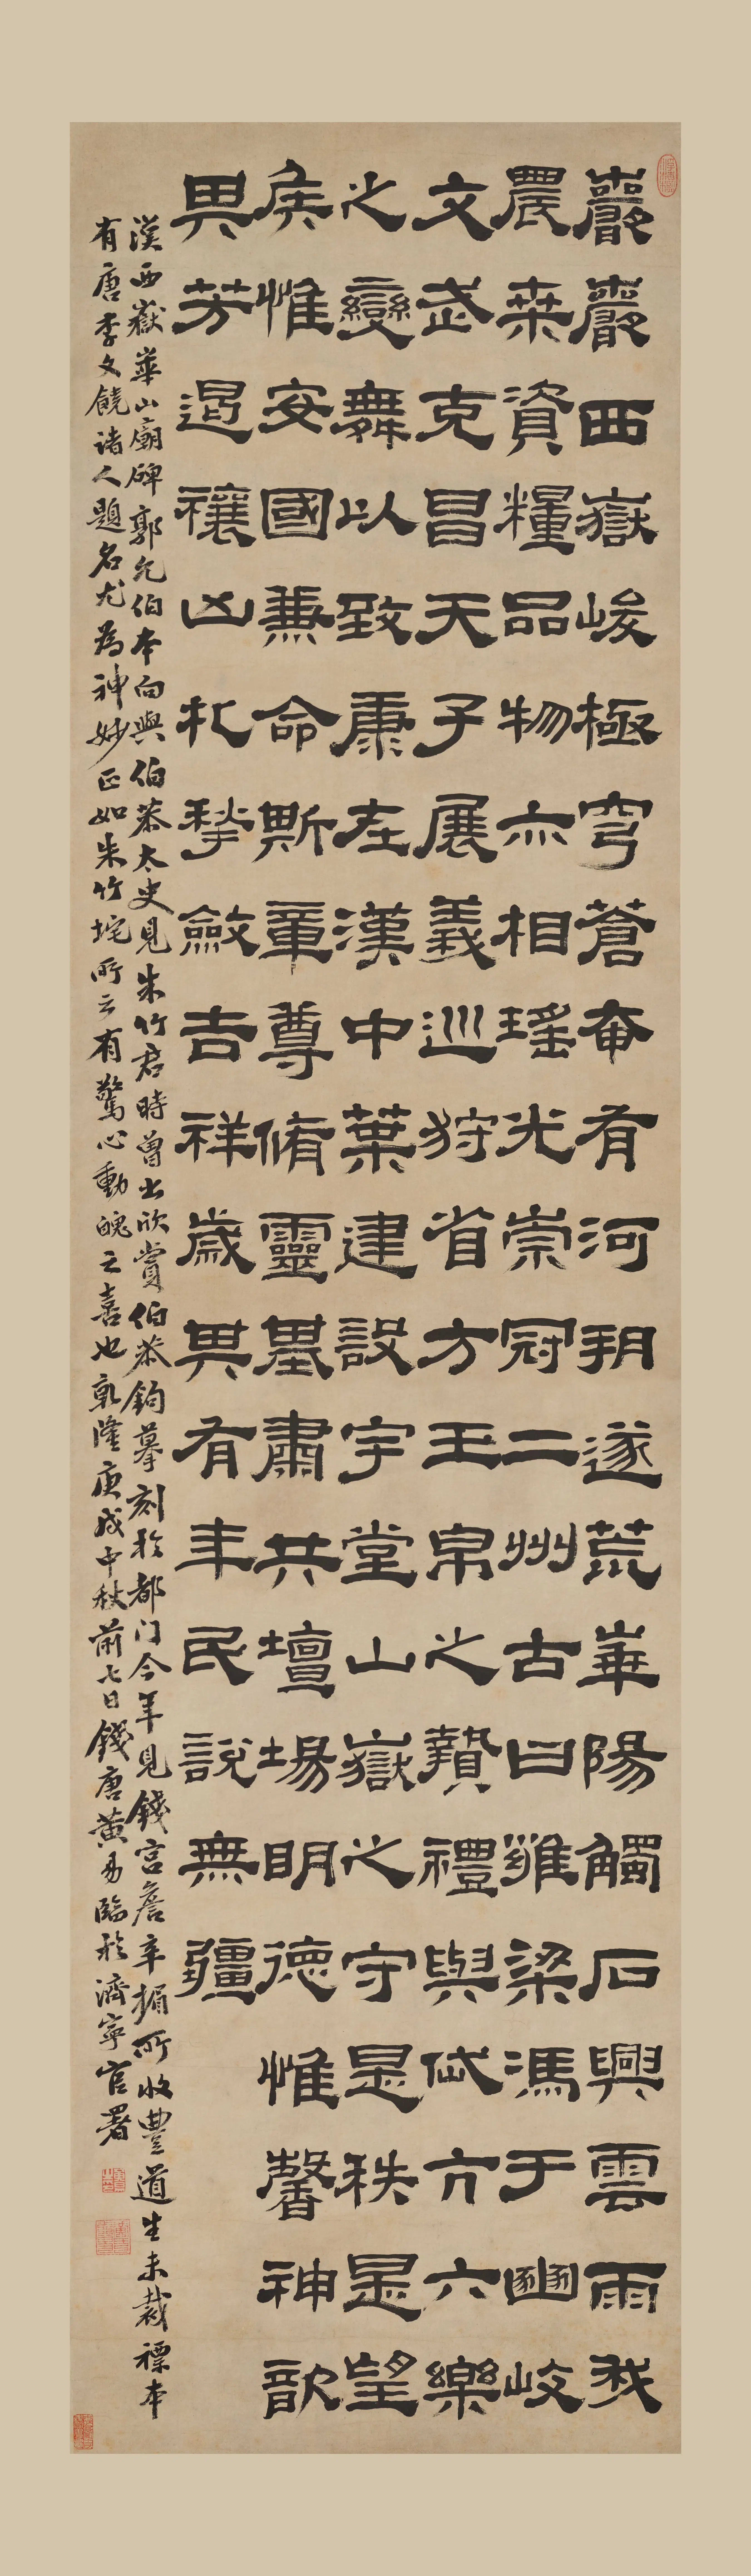 巖巖西嶽峻極穹蒼奄有河朔遂荒崋陽觸石興雲雨我
農桑資糧品物亦相瑤光崇冠二州古曰雝梁馮于豳岐
文武克昌天子展義巡狩省方玉帛之贄禮與岱亢六樂
之變舞以致康在漢中葉建設宇堂山嶽之守是秩是望
侯惟安國兼命斯章尊脩靈基肅共壇場明德惟馨神歆
其芳遏禳凶札揫斂吉祥歲其有年民說無疆
漢西嶽崋山廟碑郭允伯本向與伯恭太史見朱竹君時曾出欣賞伯恭鉤摹刻於都门今年見錢宫詹辛楣所收豐道生未裁褾本
有唐李文饒諸人題名尤為神妙正如朱竹垞所云有驚心動魄之喜也乾隆庚戌中秋前七日錢唐黄易臨於濟寧官署